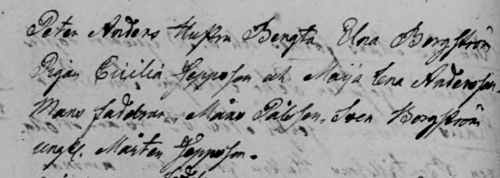 Peter Anders Hustru Bengta, Elna Borgström
Pigan Cicilia Jeppsson och Maija Lena Andersson
Måns Pålsson. Sven Borgström
ungk. Mårten Jeppsson.